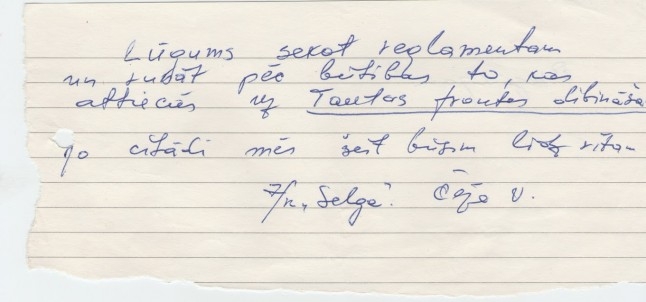 Lūgums sekot reglamentam
un runāt pēc būtības to, kas
attiecās uz Tautas frontes dibināša
jo citādi mēs šeit būsim līdz rītam
Z/k „Selga”. V.